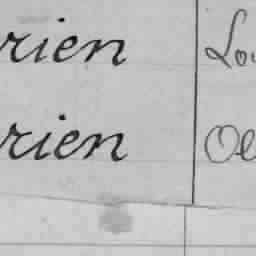 rien Lou
rien Oe